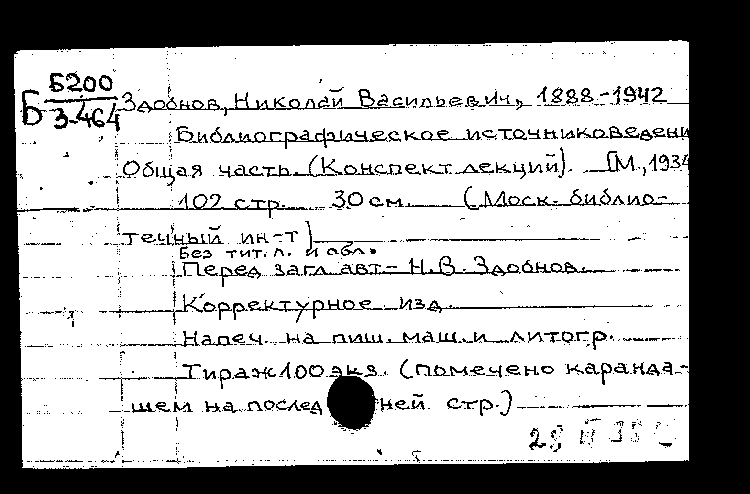 Б200
Б З-464
Здобнов, Николай Васильевич, 1888-1942
Библиографическое источниковедени
Общая часть. (Конспект лекций). [М., 1934
102 стр. 30 см. (Моск. библио-
течный ин-т)
Без тит. л. и обл.
Перед загл. авт- Н.В. Здобнов.
Корректурное изд.
Напеч. на пиш. маш. и литогр.
Тираж 100 экз. (помечено каранда-
шем на последней стр.)
28